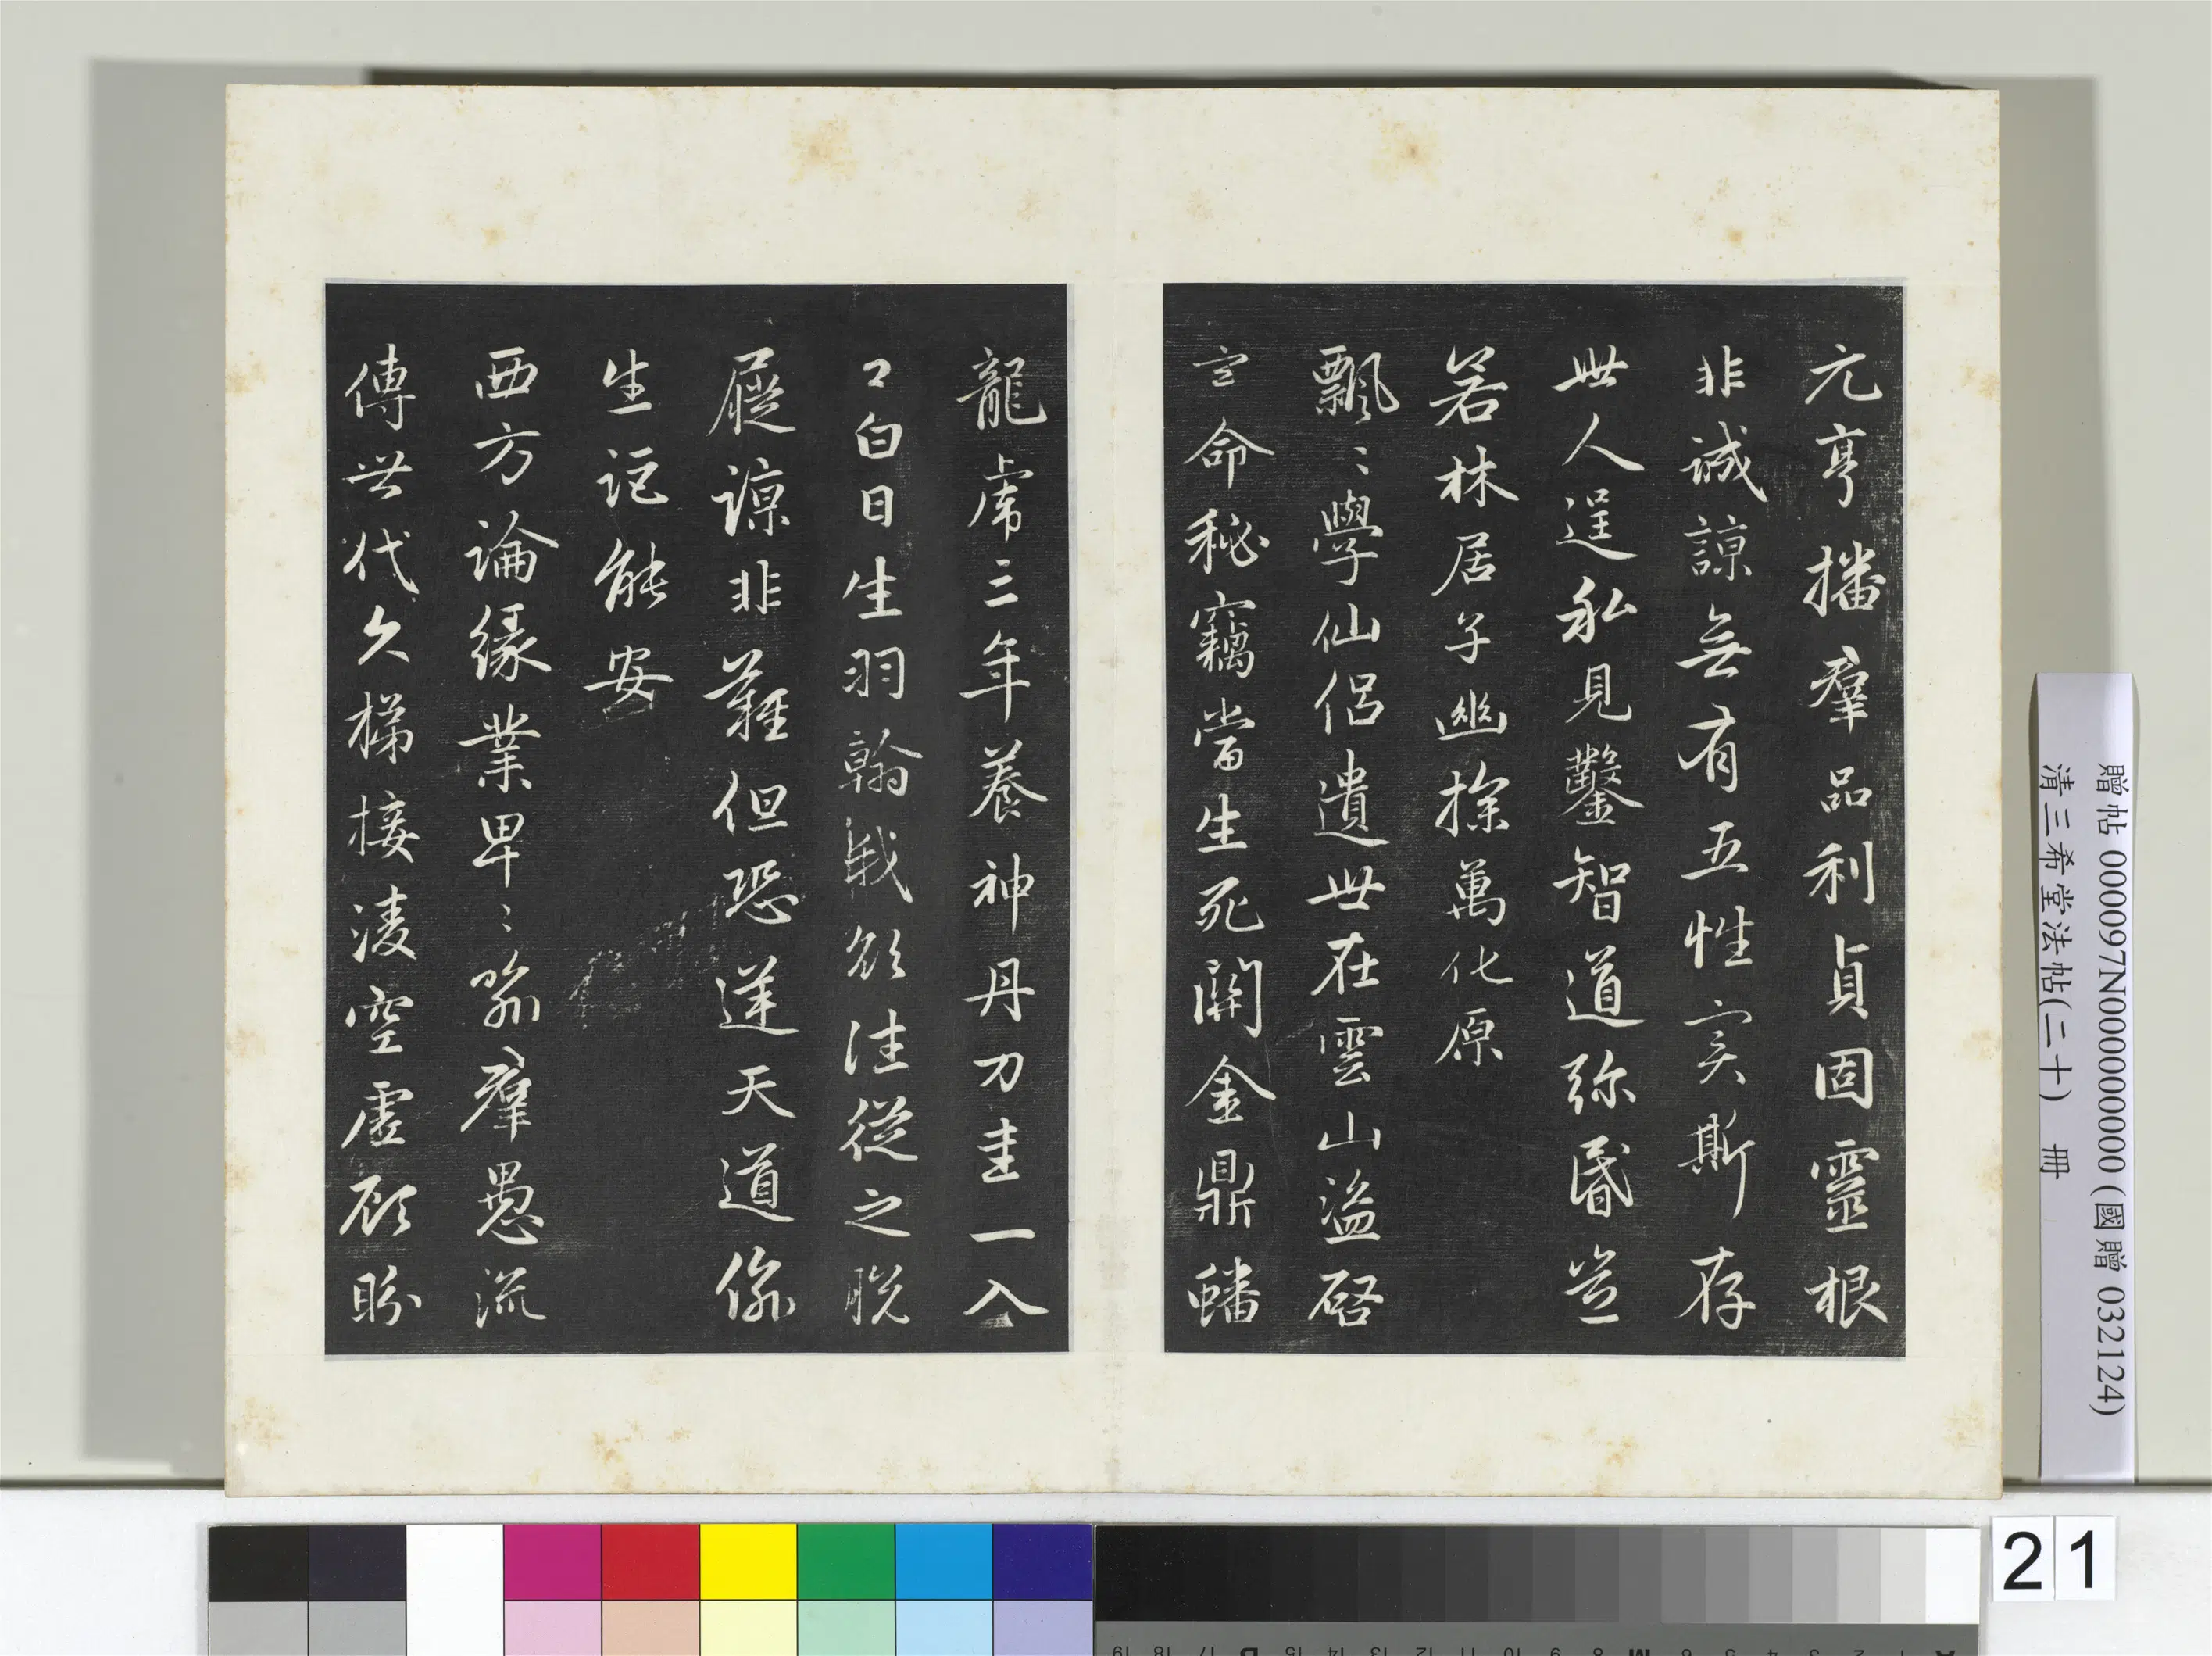 元亨播羣品利貞固靈根
非誠諒無有五性实斯存
世人逞私見鑿智道弥昏豈
若林居子幽探萬化原
飄〻學仙侶遺世在雲山盜啓
玄命秘竊當生死關金鼎蟠
龍虎三年養神丹刀圭一入
口白日生羽翰我欲往從之脫
屣諒非難但恐逆天道偷
生詎能安
西方論緣業卑〻喻羣愚流
傳世代久梯接凌空虛顧盼
贈帖 000097N000000000 (國贈 032124)
清三希堂法帖(二十) 冊
21